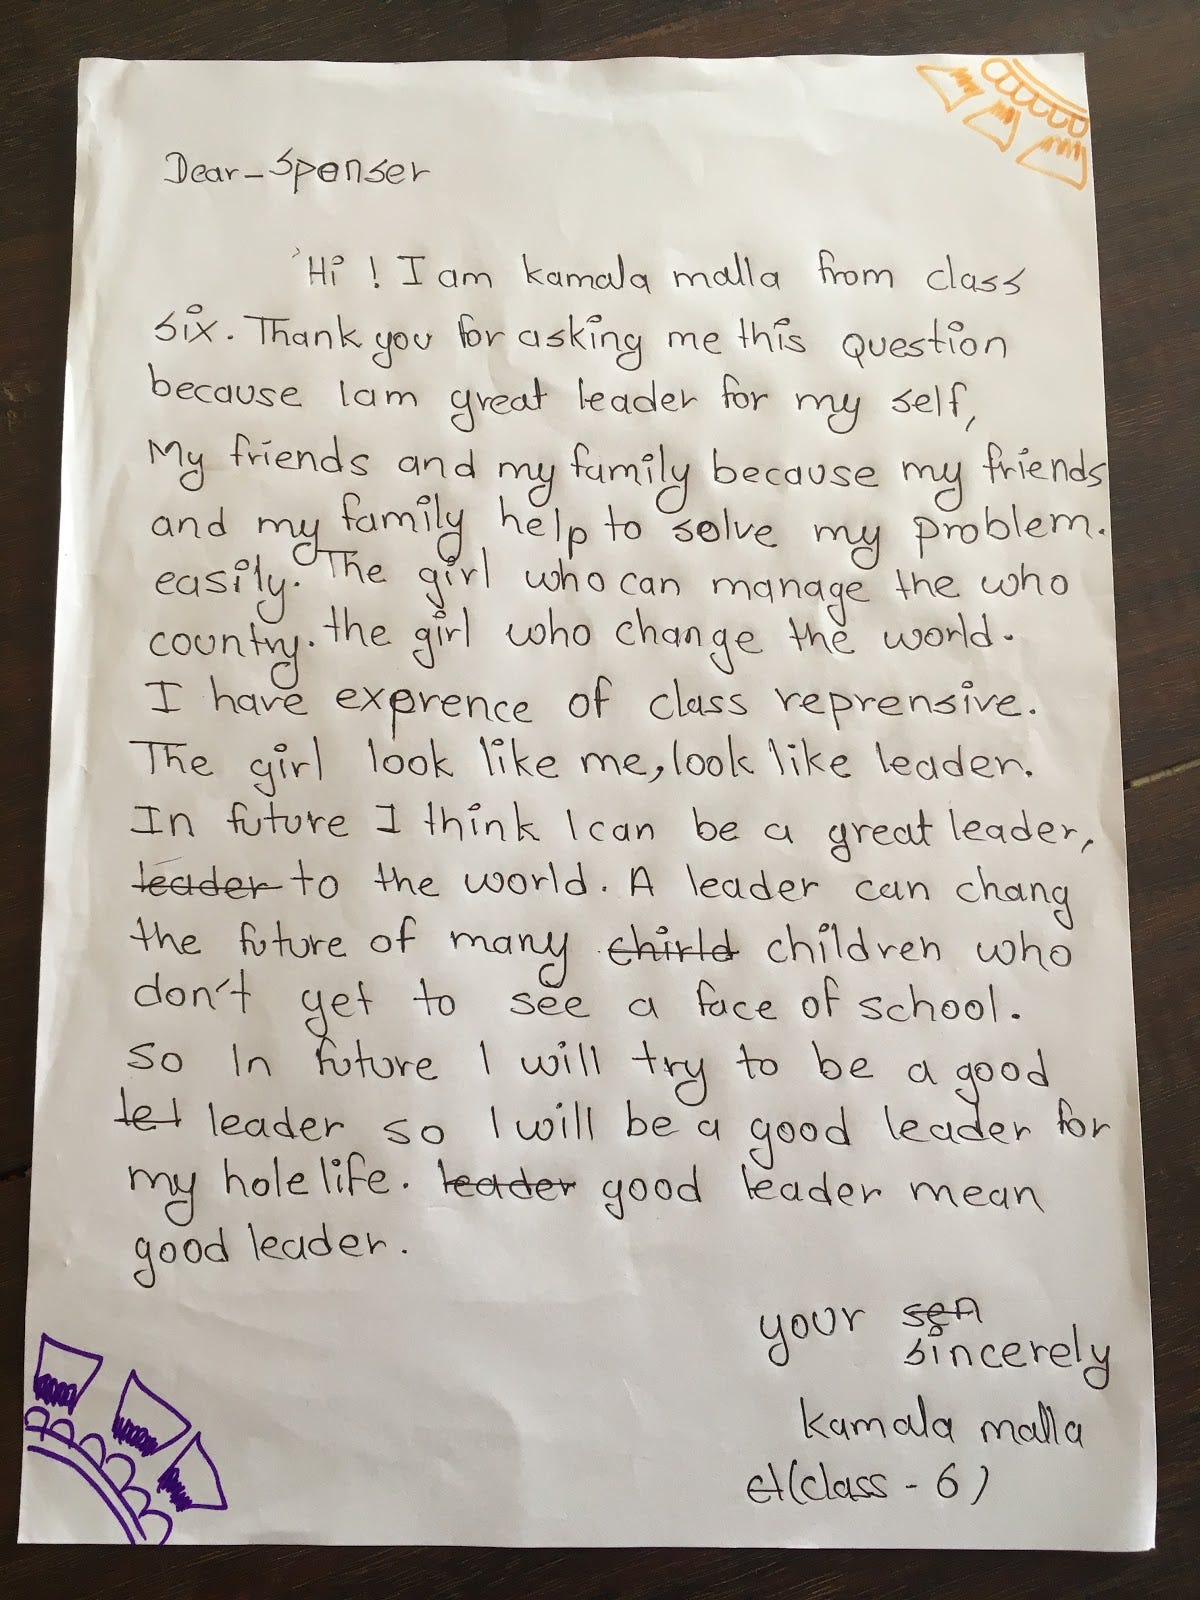 Dear - Sponser
Hi ! I am kamala malla from class
six. Thank you for asking me this question
because I am great leader for my self,
My friends and my family because my friends
and my family help to solve my problem.
easily. The girl who can manage the who
country. the girl who change the world.
I have exprence of class reprensive.
The girl look like me, look like leader.
In future I think I can be a great leader,
leader to the world. A leader can chang
the future of many chirld children who
don't get to see a face of school.
so In future I will try to be a good
let leader so I will be a good leader for
my hole life. leader good leader mean
good leader.
your sen
sincerely
kamala malla
cl(class - 6)